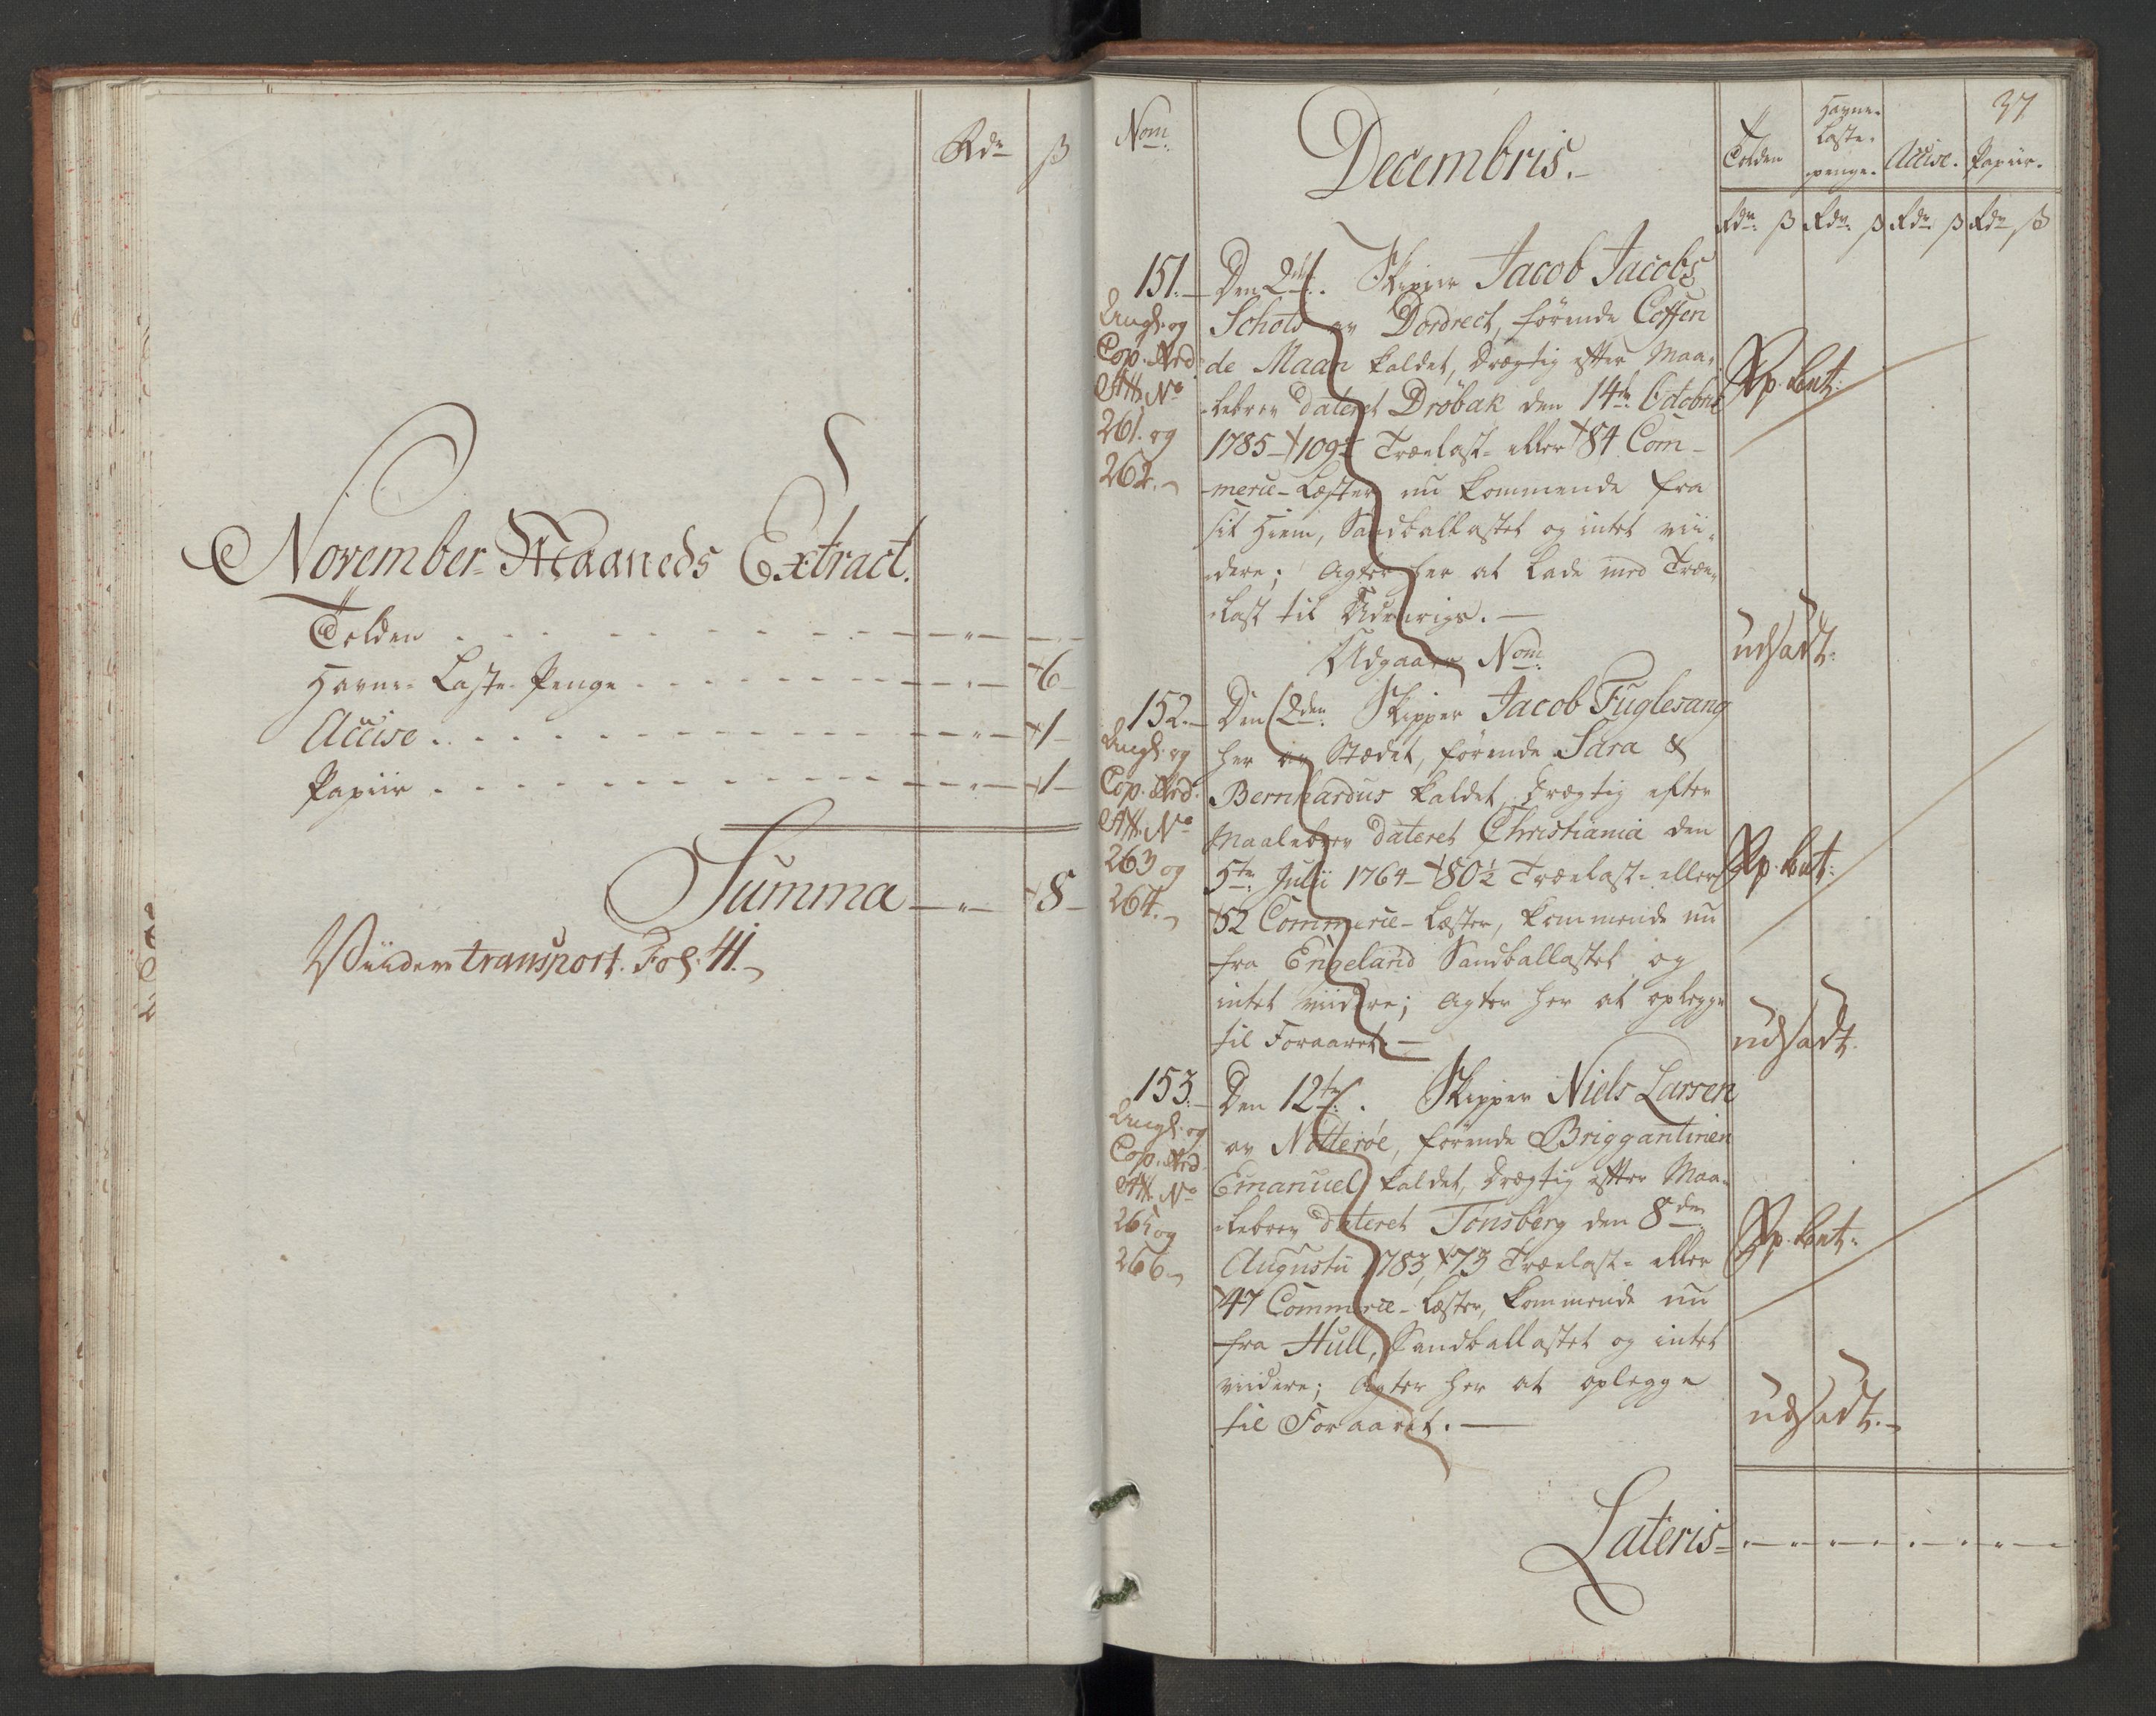 Rdr ß
November-Maaneds Extract.
Tolden
Havne-Laste-Penge - 6 -
Accise - 1 -
Papiir - 1 -
Summa - 8 -
Viidere transport. Fol. 41.
37
Nom:
Decembris.
Tolden Havne-Laste-penge. Accise. Papiir.
Rdr ß Rdr ß Rdr ß Rdr ß
151. Den 2den Skipper Jacob Jacobs
Schots av Dordrect, førende Coffen
de Maan kaldet, drægtig efter Maa-
lebrev dateret Drøbak den 14de Octobris
1785 - 109½ Trælast- eller 84 Com-
mercie-Læster nu kommende fra
sit Hiem, Sandballastet og intet vii-
dere; Agter her at lade med Træ-
last til Udenrigs. -
Udgaar Nom:
og
Cop.
Att. No
261. og
262.
udsadt.
152. Den 2den Skipper Jacob Fuglesang
her av Stædet, førende Sara &
Bernhardus kaldet, drægtig efter
Maalebrev dateret Christiania den
5te Julii 1764 - 80½ Trælast- eller
52 Commercie-Læster, kommende nu
fra Engeland Sandballastet og
intet viidere; Agter her at oplegge
til Foraaret. -
og
Cop.
Att. No
263 og
264.
udsadt.
153. Den 12te. Skipper Niels Larsen
av Nøtterøe, førende Briggantinen
Emanuel kaldet, drægtig efter Maa-
lebrev dateret Tønsberg den 8de
Augustii 1783, 73 Trælast- eller
47 Commercie-Læster, kommende nu
fra Hull, Sandballastet og intet
viidere; Agter her at oplegge
til Foraaret. -
og
Cop.
Att. No
265 og
266.
udsadt.
Lateris